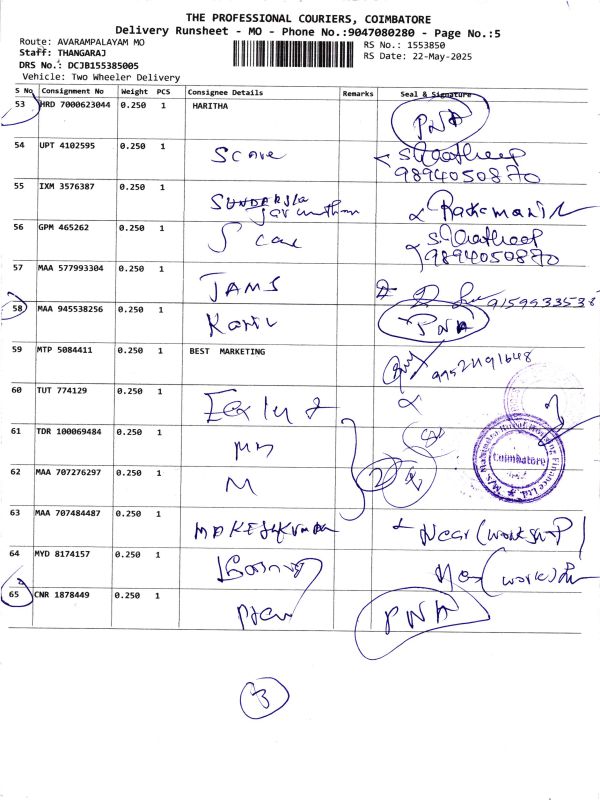 THE PROFESSIONAL COURIERS, COIMBATORE
Delivery Runsheet - MO - Phone No.:9047080280 - Page No.:5
Route: AVARAMPALAYAM MO
Staff: THANGARAJ
DRS No.: DCJB155385005
Vehicle: Two Wheeler Delivery
RS No.: 1553850
RS Date: 22-May-2025
S No Consignment No Weight PCS Consignee Details Remarks Seal & Signature
53 HRD 7000623044 0.250 1 HARITHA PNA
54 UPT 4102595 0.250 1 Score
9894050870
55 IXM 3576387 0.250 1
56 GPM 465262 0.250 1
9894050870
57 MAA 577993304 0.250 1 JAMS 9159933538
58 MAA 945538256 0.250 1 PNA
59 MTP 5084411 0.250 1 BEST MARKETING
60 TUT 774129 0.250 1
61 TDR 100069484 0.250 1
M/s. Mahindra Rural Housing Finance Ltd. Coimbatore
62 MAA 707276297 0.250 1 M
63 MAA 707484487 0.250 1 Near (workshop)
64 MYD 8174157 0.250 1
65 CNR 1878449 0.250 1 PNA
3